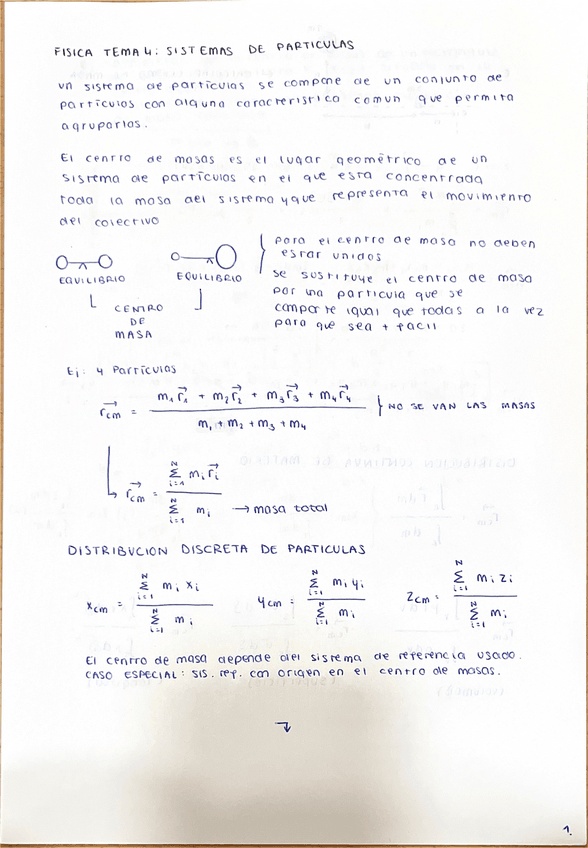 FISICA TEMA 4: SISTEMAS DE PARTICULAS
un sistema de partículas se compone de un conjunto de
partículas con alguna caracteristica comun que permita
agruparlos.
El centro de masas es el lugar geométrico de un
sistema de partículas en el que esta concentrada
toda la masa del sistema y que representa el movimiento
del colectivo
EQUILIBRIO
EQUILIBRIO
CENTRO
DE
MASA
para el centro de masa no deben
estar unidos
se sustituye el centro de masa
por una partícula que se
comporte igual que todas a la vez
para que sea + facil
Ej: 4 Partículas
r⃗cm = (m₁r⃗₁ + m₂r⃗₂ + m₃r⃗₃ + m₄r⃗₄) / (m₁ + m₂ + m₃ + m₄) } NO SE VAN LAS MASAS
↳ r⃗cm = (Σ_{i=1}^{N} mᵢ r⃗ᵢ) / (Σ_{i=1}^{N} mᵢ) → masa total
DISTRIBUCION DISCRETA DE PARTICULAS
xcm = (Σ_{i=1}^{N} mᵢ xᵢ) / (Σ_{i=1}^{N} mᵢ) ycm = (Σ_{i=1}^{N} mᵢ yᵢ) / (Σ_{i=1}^{N} mᵢ) zcm = (Σ_{i=1}^{N} mᵢ zᵢ) / (Σ_{i=1}^{N} mᵢ)
El centro de masa depende del sistema de referencia usado.
CASO ESPECIAL: SIS. ref. con origen en el centro de masas.
1.